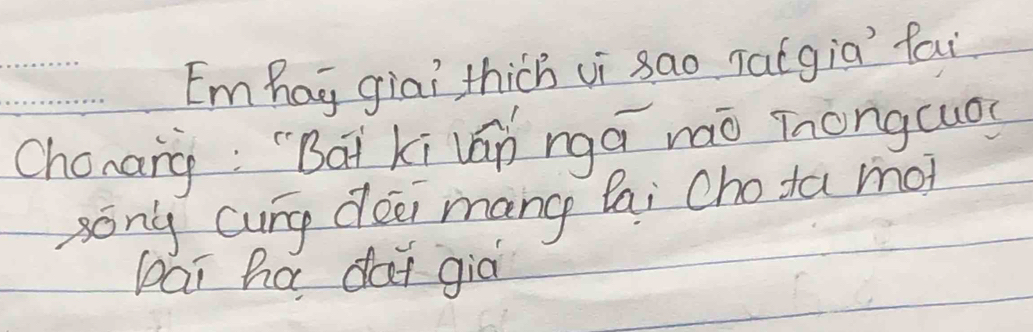 Em hãy giải thích vì sao Tác giả lại
Cho rằng : "Bất kì vấp ngã nào Trong cuộc
sống cũng đều mang lại Cho ta một
bài học đắt giá